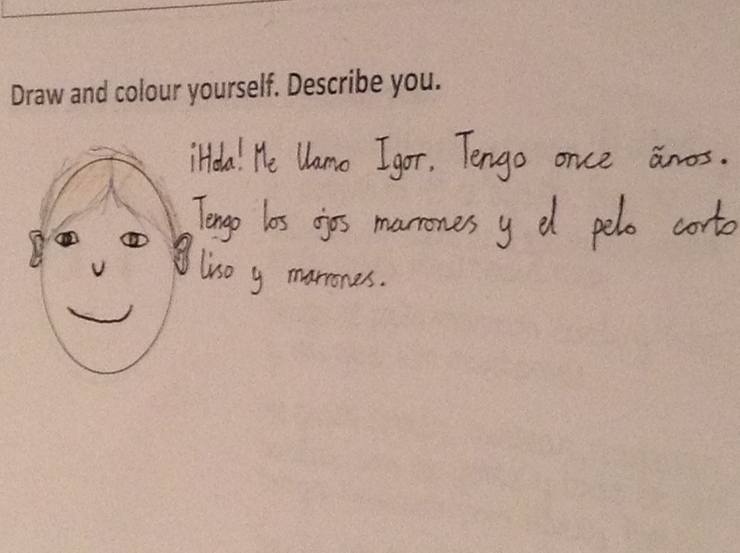 Draw and colour yourself. Describe you.
¡Hola! Me llamo Igor. Tengo once ãnos.
Tengo los ojos marrones y el pelo corto
liso y marrones.